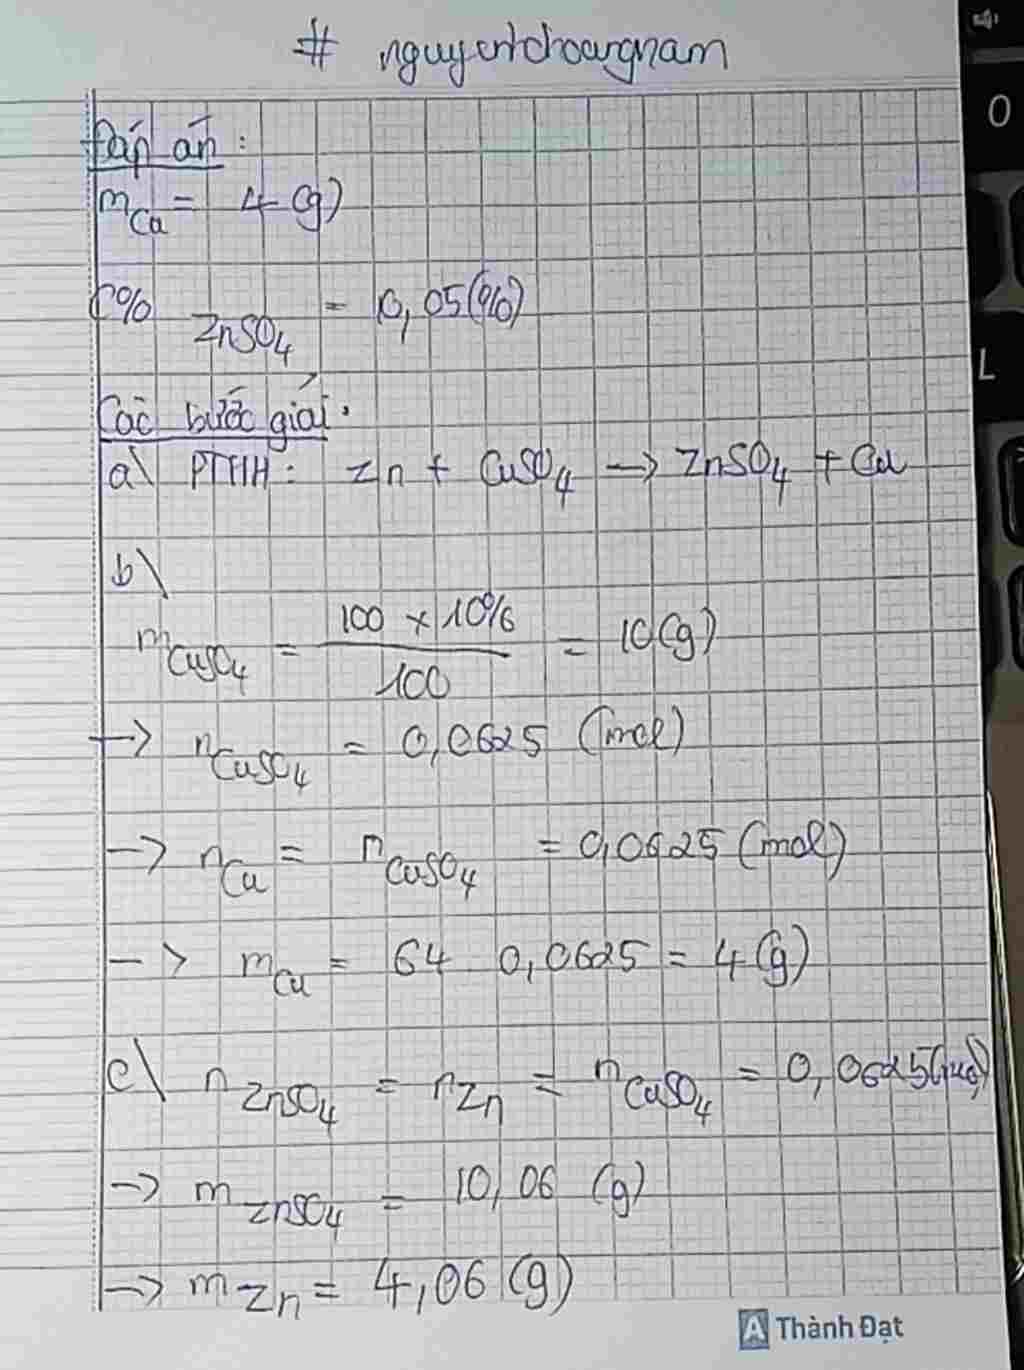 # nguyenhoangnam
Đáp án:
mCu = 4 (g)
C% ZnSO4 = 10,05 (%)
Các bước giải:
a\ PTHH: Zn + CuSO4 → ZnSO4 + Cu
b\
mCuSO4 = 100 × 10% / 100 = 10 (g)
→ nCuSO4 = 0,0625 (mol)
→ nCu = nCuSO4 = 0,0625 (mol)
→ mCu = 64 0,0625 = 4 (g)
c\ nZnSO4 = nZn = nCuSO4 = 0,0625 (mol)
→ mZnSO4 = 10,06 (g)
→ mZn = 4,06 (g)
A Thành Đạt
O
L